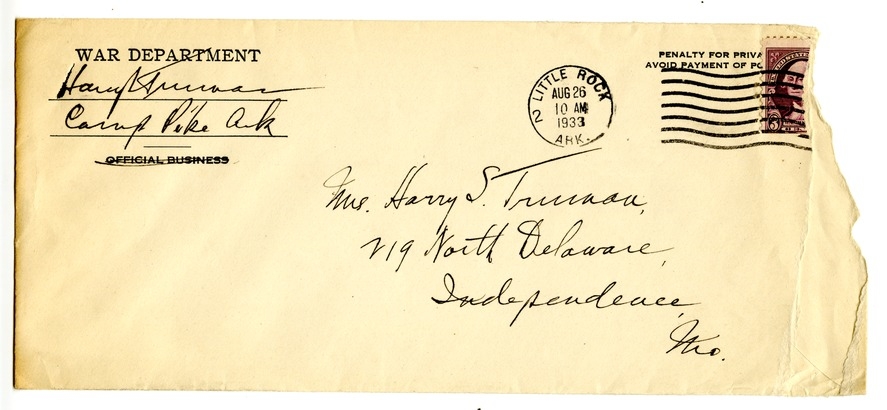 WAR DEPARTMENT
Harry S Truman
Camp Pike Ark
OFFICIAL BUSINESS
LITTLE ROCK
2
AUG 26
10 AM
1933
ARK.
PENALTY FOR PRIVA
AVOID PAYMENT OF PO
3
Mrs. Harry S. Truman,
219 North Delaware,
Independence,
Mo.